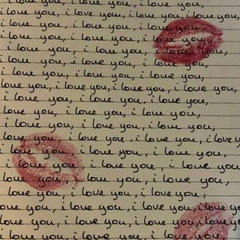 i love you, i love you,
i love you, i love you, i love you,
i love you, i love you,
i love you, i love you, i love you,
i love you, i love you,
i love you, i love you, i love you,
i love you, i love you, i love you,
i love you, i love you, i love you,
i love you, i love you, i love you,
i love you, i love you, i love you,
i love you, i love you, i love you
love you, i love you, i love you,
i love you, i love you, i love you,
i love you, i love you, i love you,
i love you, i love you, i love you,
love you, i love you, i love you,
you, i love you, i love you, i love you,
love you, i love you, i love you, i love you
i love you, i love you, i love you,